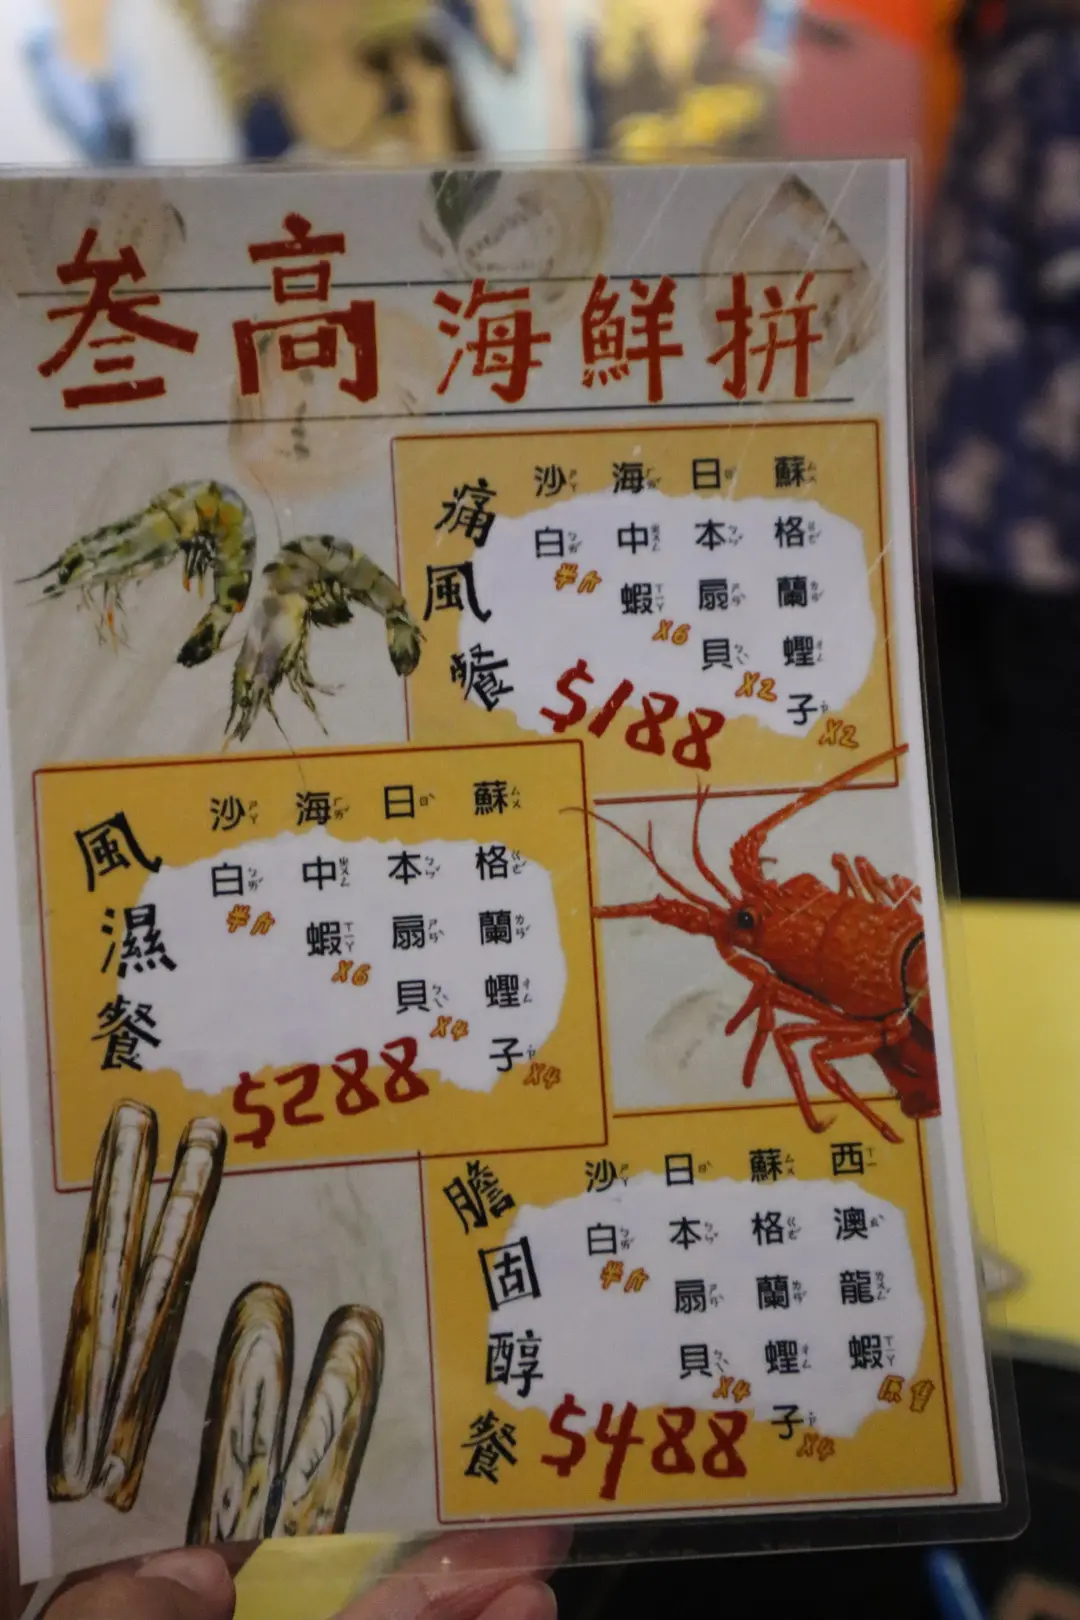 叁高海鮮拼
痛風餐
沙白 半斤
海中蝦 X6
日本扇貝 X2
蘇格蘭蟶子 X2
$188
風濕餐
沙白 半斤
海中蝦 X6
日本扇貝 X4
蘇格蘭蟶子 X4
$288
膽固醇餐
沙白 半斤
日本扇貝 X4
蘇格蘭蟶子 X4
西澳龍蝦 原隻
$488